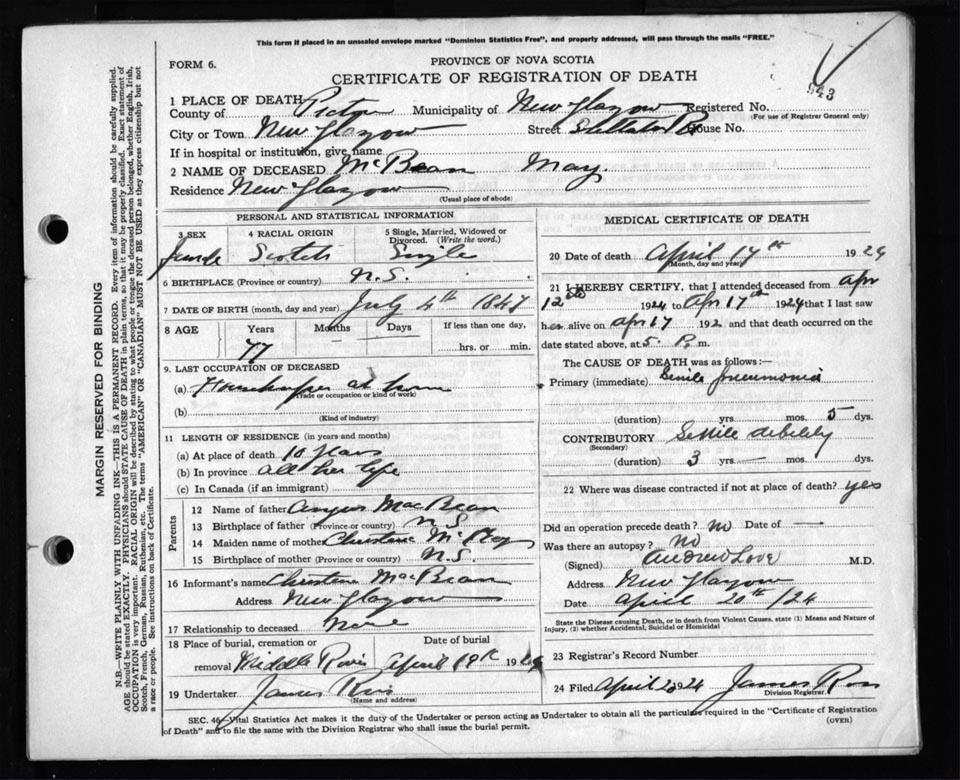 This form if placed in an unsealed envelope marked "Dominion Statistics Free", and properly addressed, will pass through the mails "FREE."
FORM 6.
PROVINCE OF NOVA SCOTIA
CERTIFICATE OF REGISTRATION OF DEATH
943
1 PLACE OF DEATH
County of Pictou Municipality of New Glasgow Registered No.
(For use of Registrar General only)
City or Town New Glasgow Street Stellarton Rd House No.
If in hospital or institution, give name
2 NAME OF DECEASED McBean May
Residence New Glasgow
(Usual place of abode)
PERSONAL AND STATISTICAL INFORMATION
3 SEX 4 RACIAL ORIGIN 5 Single, Married, Widowed or Divorced. (Write the word.)
Female Scotch Single
6 BIRTHPLACE (Province or country) N.S.
7 DATE OF BIRTH (month, day and year) July 4th 1847
8 AGE Years Months Days If less than one day,
77 hrs. or min.
9. LAST OCCUPATION OF DECEASED
(a) Housekeeper at home
(Trade or occupation or kind of work)
(b)
(Kind of industry)
11 LENGTH OF RESIDENCE (in years and months)
(a) At place of death 10 years
(b) In province all her life
(c) In Canada (if an immigrant)
Parents
12 Name of father Angus MacBean
13 Birthplace of father (Province or country) N.S
14 Maiden name of mother Christene
15 Birthplace of mother (Province or country) N.S.
16 Informant's name Christene MacBean
Address New Glasgow
17 Relationship to deceased
18 Place of burial, cremation or removal Date of burial
Middle River April 19th 1924
19 Undertaker James
(Name and address)
MEDICAL CERTIFICATE OF DEATH
20 Date of death April 17th 1924
(Month, day and year)
21 I HEREBY CERTIFY, that I attended deceased from Apr
12th 1924 to Apr 17th 1924 that I last saw
her alive on Apr 17 192 and that death occurred on
date stated above, at 5. P. m.
The CAUSE OF DEATH was as follows:—
Primary (immediate) Senile Pneumonia
(duration) yrs. mos. 5 dys.
CONTRIBUTORY Senile debility
(Secondary)
(duration) 3 yrs. — mos. dys.
22 Where was disease contracted if not at place of death? yes
Did an operation precede death? no Date of —
Was there an autopsy? no
(Signed) Andrew Love M.D.
Address New Glasgow
Date April 20th /24
State the Disease causing Death, or in death from Violent Causes, state (1) Means and Nature of
Injury, (2) whether Accidental, Suicidal or Homicidal
23 Registrar's Record Number
24 Filed April 1924 James Ross
Division Registrar
SEC. 46—Vital Statistics Act makes it the duty of the Undertaker or person acting as Undertaker to obtain all the particulars required in the "Certificate of Registration
of Death" and to file the same with the Division Registrar who shall issue the burial permit.
(OVER)
MARGIN RESERVED FOR BINDING
N.B.—WRITE PLAINLY WITH UNFADING INK—THIS IS A PERMANENT RECORD. Every item of information should be carefully supplied.
AGE should be stated EXACTLY. PHYSICIANS should STATE CAUSE OF DEATH in plain terms, so that it may be properly classified. Exact statement of
OCCUPATION is very important. RACIAL ORIGIN will be described by stating to what people or tongue the deceased person belonged, whether English, Irish,
Scotch, French, German, Russian, Ruthenian, etc. The terms "AMERICAN" OR "CANADIAN" MUST NOT BE USED as they express citizenship but not
a race or people. See instructions on back of Certificate.